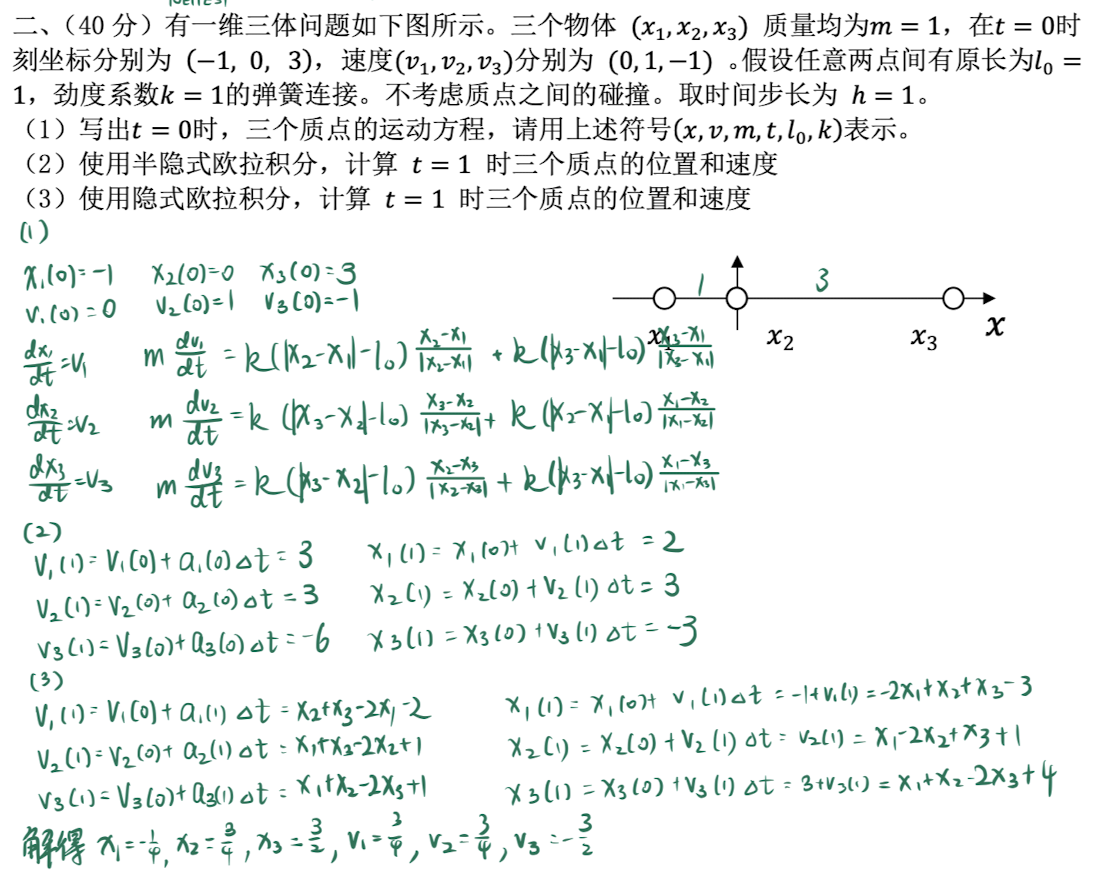 二、（40 分）有一维三体问题如下图所示。三个物体 (x₁, x₂, x₃) 质量均为m = 1，在t = 0时
刻坐标分别为 (−1, 0, 3)，速度(v₁, v₂, v₃)分别为 (0, 1, −1) 。假设任意两点间有原长为l₀ =
1，劲度系数k = 1的弹簧连接。不考虑质点之间的碰撞。取时间步长为 h = 1。
（1）写出t = 0时，三个质点的运动方程，请用上述符号(x, v, m, t, l₀, k)表示。
（2）使用半隐式欧拉积分，计算 t = 1 时三个质点的位置和速度
（3）使用隐式欧拉积分，计算 t = 1 时三个质点的位置和速度
(1)
x₁(0)=-1 x₂(0)=0 x₃(0)=3
v₁(0)=0 v₂(0)=1 v₃(0)=-1
1 3
x₂ x₃ x
dx₁/dt=v₁ m dv₁/dt = k(|x₂-x₁|-l₀) (x₂-x₁)/|x₂-x₁| + k(|x₃-x₁|-l₀) (x₃-x₁)/|x₃-x₁|
dx₂/dt=v₂ m dv₂/dt = k(|x₃-x₂|-l₀) (x₃-x₂)/|x₃-x₂| + k(|x₂-x₁|-l₀) (x₁-x₂)/|x₁-x₂|
dx₃/dt=v₃ m dv₃/dt = k(|x₃-x₂|-l₀) (x₂-x₃)/|x₂-x₃| + k(|x₃-x₁|-l₀) (x₁-x₃)/|x₁-x₃|
(2)
v₁(1)=v₁(0)+a₁(0)Δt=3 x₁(1)=x₁(0)+v₁(1)Δt=2
v₂(1)=v₂(0)+a₂(0)Δt=3 x₂(1)=x₂(0)+v₂(1)Δt=3
v₃(1)=v₃(0)+a₃(0)Δt=-6 x₃(1)=x₃(0)+v₃(1)Δt=-3
(3)
v₁(1)=v₁(0)+a₁(1)Δt=x₂+x₃-2x₁-2 x₁(1)=x₁(0)+v₁(1)Δt=-1+v₁(1)=-2x₁+x₂+x₃-3
v₂(1)=v₂(0)+a₂(1)Δt=x₁+x₃-2x₂+1 x₂(1)=x₂(0)+v₂(1)Δt=v₂(1)=x₁-2x₂+x₃+1
v₃(1)=v₃(0)+a₃(1)Δt=x₁+x₂-2x₃+1 x₃(1)=x₃(0)+v₃(1)Δt=3+v₃(1)=x₁+x₂-2x₃+4
解得 x₁=-1/4, x₂=3/4, x₃=3/2, v₁=3/4, v₂=3/4, v₃=-3/2